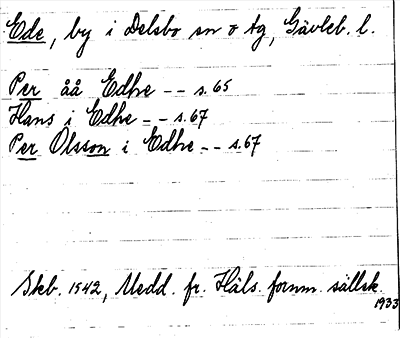 Ede, by i Delsbo sn o tg, Gävleb. l.
Per åå Edhe -- s. 65
Hans i Edhe -- s. 67
Per Olsson i Edhe -- s. 67
Skb. 1542, Medd. fr. Häls. fornm. sällsk.
1933